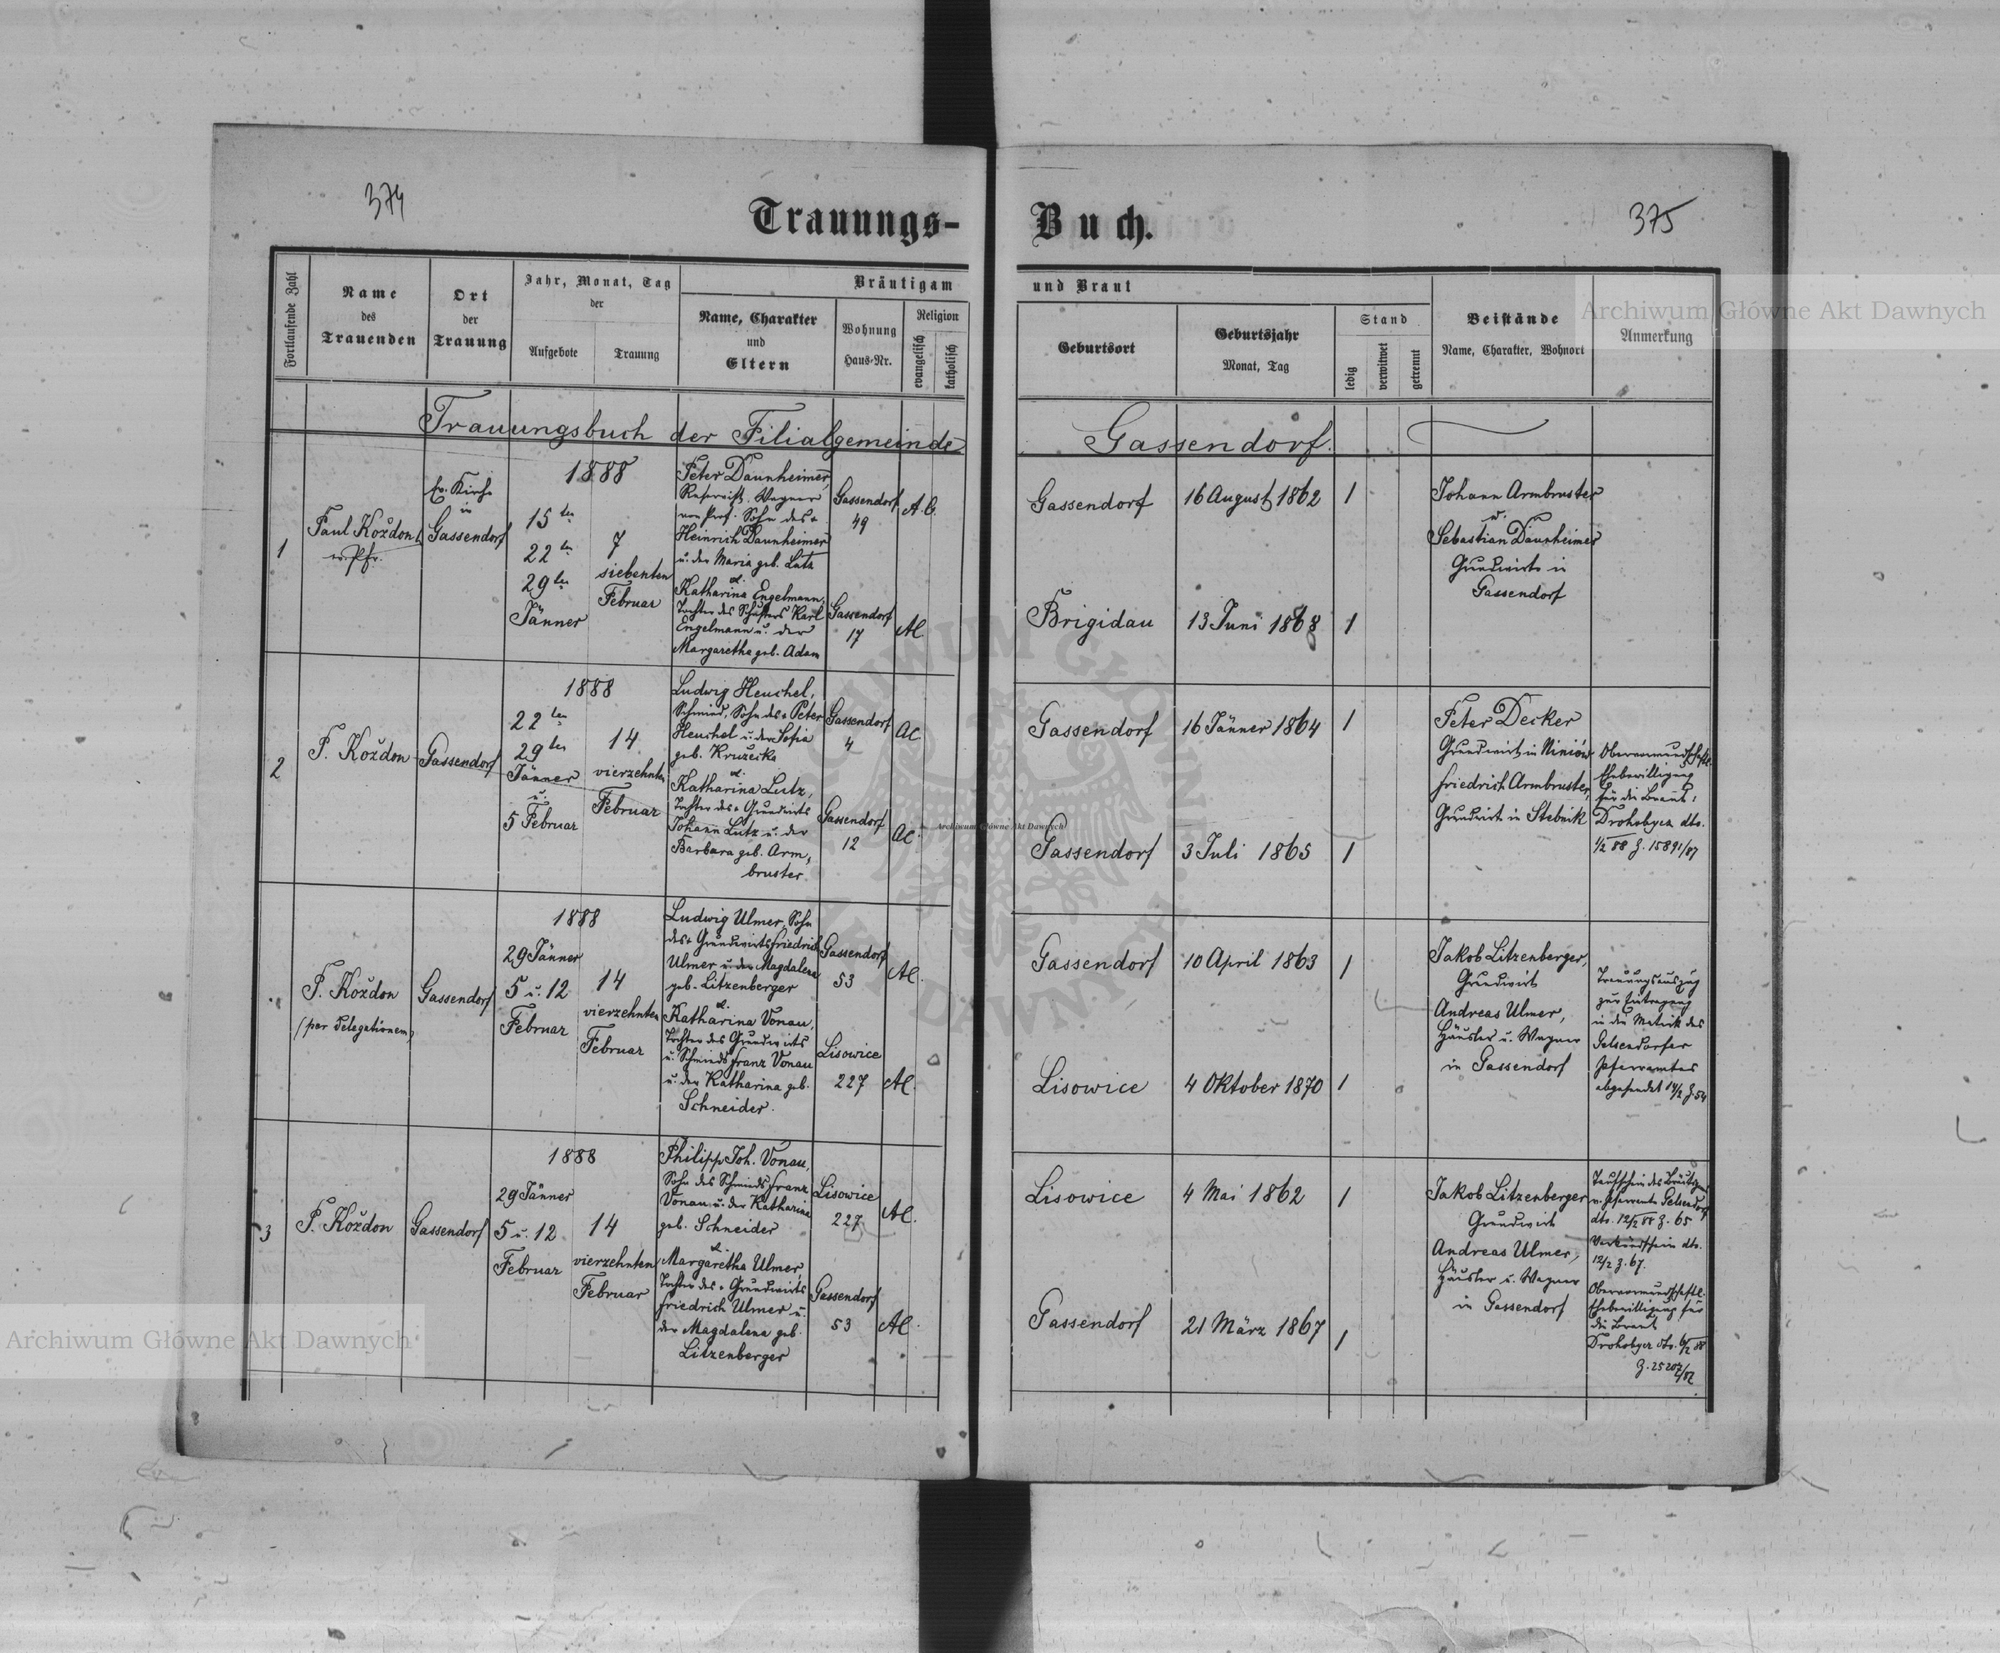 374
Trauungs-
Buch.
375
Fortlaufende Zahl
Name
des
Trauenden
Ort
der
Trauung
Jahr, Monat, Tag
der
Aufgebote
Trauung
Bräutigam
Name, Charakter
und
Eltern
Wohnung
Haus-Nr.
Religion
evangelisch
katholisch
und Braut
Geburtsort
Geburtsjahr
Monat, Tag
Stand
ledig
verwitwet
getrennt
Beistände
Name, Charakter, Wohnort
Anmerkung
Archiwum Główne Akt Dawnych
Trauungsbuch der Filialgemeinde
Gassendorf.
1
Paul Koždon
Pfr.
Ev. Kirche
in
Gassendorf
1888
15ten
22ten
29ten
Jänner
7
siebenten
Februar
Peter Daunheimer,
Reservist, Wagner
von Prof. Sohn des +
Heinrich Daunheimer
u. der Maria geb. Lutz
et.
Katharina Engelmann,
Tochter des Schusters Karl
Engelmann u. der
Margaretha geb. Adam
Gassendorf
49
A.C.
Gassendorf
17
AC.
Gassendorf
16 August 1862
1
Brigidau
13 Juni 1868
1
Johann Armbruster
u.
Sebastian Daunheimer
Grundwirte in
Gassendorf
2
P. Koždon
Gassendorf
1888
22ten
29ten
Jänner
u.
5 Februar
14
vierzehnten
Februar
Ludwig Heuchel,
Schmied, Sohn des + Peter
Heuchel u. der Sofia
geb. Kružicka
et.
Katharina Lutz,
Tochter des + Grundwirts
Johann Lutz u. der
Barbara geb. Arm,
bruster
Gassendorf
4
AC
Gassendorf
12
AC.
Gassendorf
16 Jänner 1864
1
Gassendorf
3 Juli 1865
1
Peter Decker
Grundwirt in Miniów
Friedrich Armbruster,
Grundwirt in Stebnik
Obervormundschaftl.
Ehebewilligung
für die Braut,
Drohobycz dto.
1/2 88 Z. 15891/87
P. Koždon
(per Delegationem)
Gassendorf
1888
29 Jänner
5 u. 12
Februar
14
vierzehnten
Februar
Ludwig Ulmer, Sohn
des + Grundwirts Friedrich
Ulmer u. der Magdalena
geb. Litzenberger
et.
Katharina Vonau,
Tochter des Grundwirts
u. Schmieds Franz Vonau
u. der Katharina geb.
Schneider.
Gassendorf
53
AC.
Lisowice
227
AC.
Gassendorf
10 April 1863
1
Lisowice
4 Oktober 1870
1
Jakob Litzenberger,
Grundwirt
Andreas Ulmer,
Häusler u. Wagner
in Gassendorf
Trauungsauszug
zur Eintragung
in die Matrik des
Gelsendorfer
Pfarramtes
abgesendet 14/2 Z 54
3
P. Koždon
Gassendorf
1888
29 Jänner
5 u. 12
Februar
14
vierzehnten
Februar
Philipp Joh. Vonau,
Sohn des Schmieds Franz
Vonau u. der Katharina
geb. Schneider
et.
Margaretha Ulmer,
Tochter des + Grundwirts
Friedrich Ulmer u.
der Magdalena geb.
Litzenberger
Lisowice
227
AC.
Gassendorf
53
AC.
Lisowice
4 Mai 1862
1
Gassendorf
21 März 1867
1
Jakob Litzenberger
Grundwirt
Andreas Ulmer,
Häusler u. Wagner
in Gassendorf
Taufschein des Bräutigams
v. Pfarramte Gelsendorf
dto. 12/2 88 Z. 65
Verkündschein dto.
12/2 Z. 67.
Obervormundschaftl.
Ehebewilligung für
die Braut
Drohobycz dto. 6/2 88
Z. 25207/87
Archiwum Główne Akt Dawnych
Archiwum Główne Akt Dawnych
ARCHIWUM GŁÓWNE AKT DAWNYCH